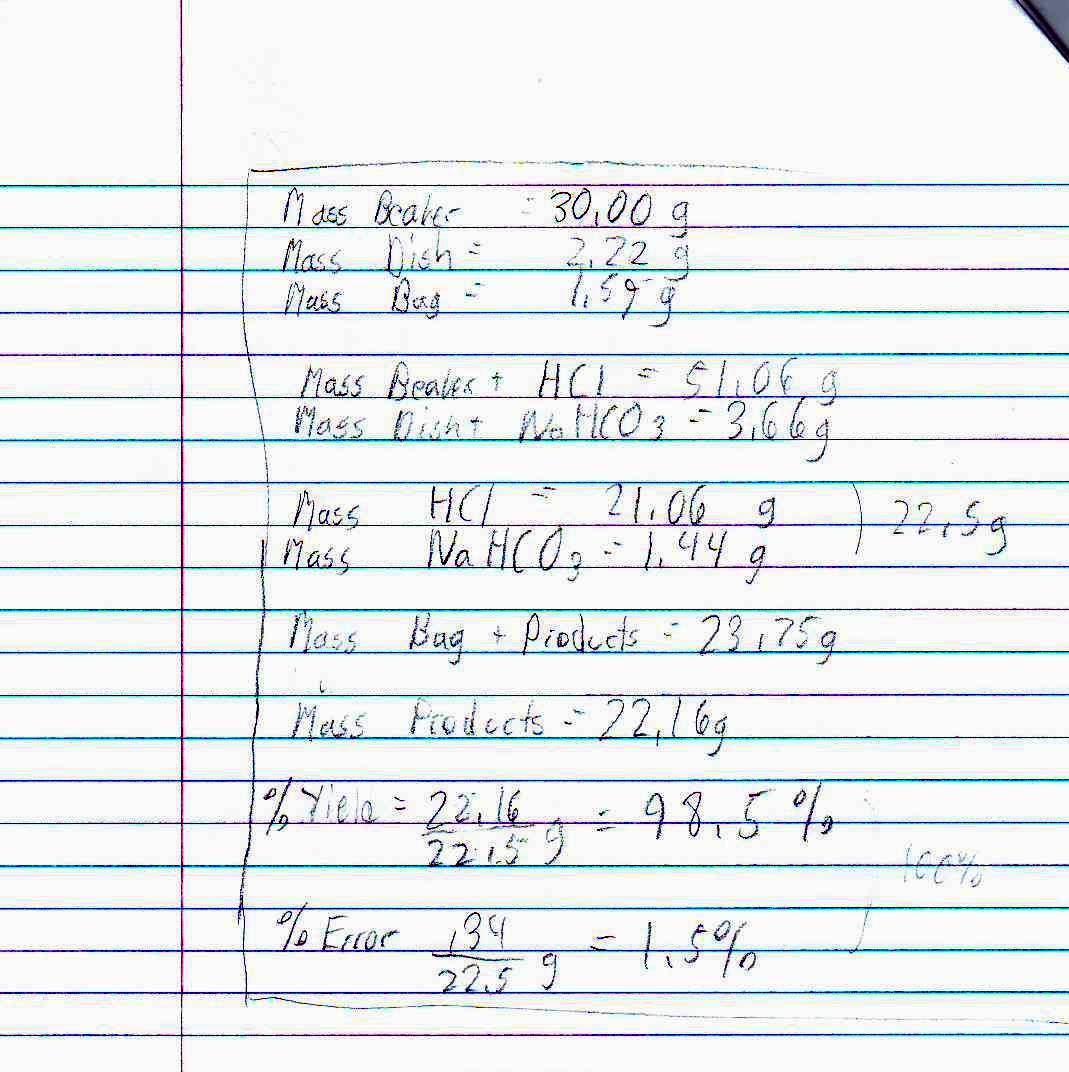 Mass Beaker = 30.00 g
Mass Dish = 2.22 g
Mass Bag = 1.59 g
Mass Beaker + HCl = 51.06 g
Mass Dish + NaHCO3 = 3.66g
Mass HCl = 21.06 g ) 22.5g
Mass NaHCO3 = 1.44 g
Mass Bag + Products = 23.75g
Mass Products = 22.16g
% Yield = 22.16/22.5 g = 98.5 %
100%
% Error .34/22.5 g = 1.5%